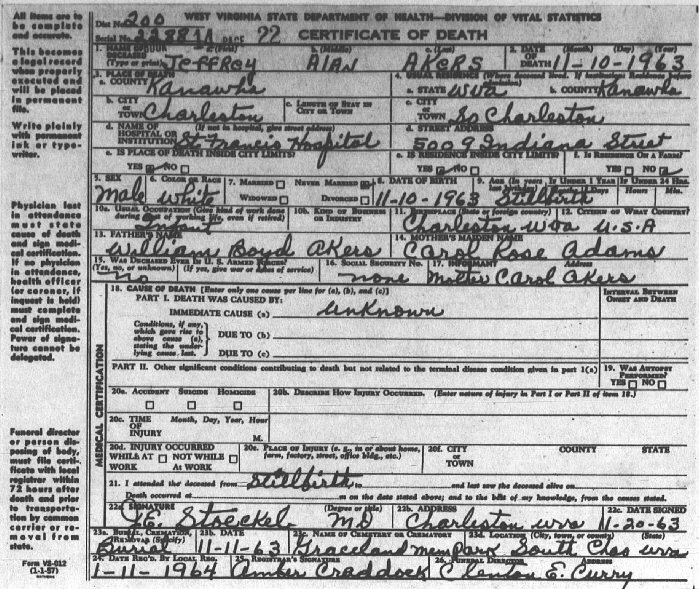 All items are to be complete and accurate.
This becomes a legal record when properly executed and will be placed in permanent file.
Write plainly with permanent ink or type-writer.
Physician last in attendance must state cause of death and sign medical certification. If no physician in attendance, health officer (or coroner, if inquest is held) must complete and sign medical certification. Power of signature cannot be delegated.
Funeral director or person disposing of body, must file certificate with local registrar within 72 hours after death and prior to transportation by common carrier or removal from state.
Form VS-012
(1-1-57)
WEST VIRGINIA STATE DEPARTMENT OF HEALTH—DIVISION OF VITAL STATISTICS
Dist No. 200
Serial No. 22881A PAGE 22 CERTIFICATE OF DEATH
1. NAME OF DECEASED (Type or print) (First) JEFFROY b. (Middle) Alan c. (Last) AKERS 2. DATE OF DEATH (Month) (Day) (Year) 11-10-1963
3. PLACE OF DEATH a. COUNTY Kanawha 4. USUAL RESIDENCE (Where deceased lived. If institution: Residence before a. STATE W Va b. COUNTY Kanawha
b. CITY or TOWN Charleston c. LENGTH OF STAY IN CITY OR TOWN c. CITY or TOWN So Charleston
d. NAME OF HOSPITAL OR INSTITUTION (If not in hospital, give street address) St. Francis Hospital d. STREET ADDRESS 5009 Indiana Street
e. IS PLACE OF DEATH INSIDE CITY LIMITS? YES NO e. IS RESIDENCE INSIDE CITY LIMITS? YES NO f. IS RESIDENCE ON A FARM? YES NO
5. SEX Male 6. COLOR OR RACE White 7. MARRIED NEVER MARRIED WIDOWED DIVORCED 8. DATE OF BIRTH 11-10-1963 9. AGE (In years last birthday) Stillbirth IF UNDER 1 YEAR Months Days IF UNDER 24 HRS. Hours Min.
10a. USUAL OCCUPATION (Give kind of work done during most of working life, even if retired) 10b. KIND OF BUSINESS OR INDUSTRY 11. BIRTHPLACE (State or foreign country) Charleston W Va 12. CITIZEN OF WHAT COUNTRY? U.S.A
13. FATHER'S NAME William Boyd Akers 14. MOTHER'S MAIDEN NAME Carol Rose Adams
15. WAS DECEASED EVER IN U. S. ARMED FORCES? (Yes, no, or unknown) (If yes, give war or dates of service) No 16. SOCIAL SECURITY NO. none 17. INFORMANT Address Mother Carol Akers
18. CAUSE OF DEATH [Enter only one cause per line for (a), (b), and (c)] INTERVAL BETWEEN ONSET AND DEATH
PART I. DEATH WAS CAUSED BY:
IMMEDIATE CAUSE (a) Unknown
Conditions, if any, which gave rise to above cause (a), stating the underlying cause last. DUE TO (b)
DUE TO (c)
PART II. Other significant conditions contributing to death but not related to the terminal disease condition given in part 1(a) 19. WAS AUTOPSY PERFORMED? YES NO
MEDICAL CERTIFICATION
20a. ACCIDENT SUICIDE HOMICIDE 20b. DESCRIBE HOW INJURY OCCURRED. (Enter nature of injury in Part I or Part II of item 18.)
20c. TIME OF INJURY Month, Day, Year, Hour M.
20d. INJURY OCCURRED WHILE AT WORK NOT WHILE AT WORK 20e. PLACE OF INJURY (e. g., in or about home, farm, factory, street, office bldg., etc.) 20f. CITY or TOWN COUNTY STATE
21. I attended the deceased from Stillbirth to and last saw the deceased alive on
Death occurred at m on the date stated above; and to the best of my knowledge, from the causes stated.
22a. SIGNATURE (Degree or title) J.E. Stoeckel MD 22b. ADDRESS Charleston W Va 22c. DATE SIGNED 11-20-63
23a. BURIAL, CREMATION, REMOVAL (Specify) Burial 23b. DATE 11-11-63 23c. NAME OF CEMETERY OR CREMATORY Graceland Mem Park 23d. LOCATION (City, town, or county) (State) South Chas W Va
24. DATE REC'D. BY LOCAL REG. 1-11-1964 25. REGISTRAR'S SIGNATURE Amber Craddock 26. FUNERAL DIRECTOR ADDRESS Clenton E. Curry